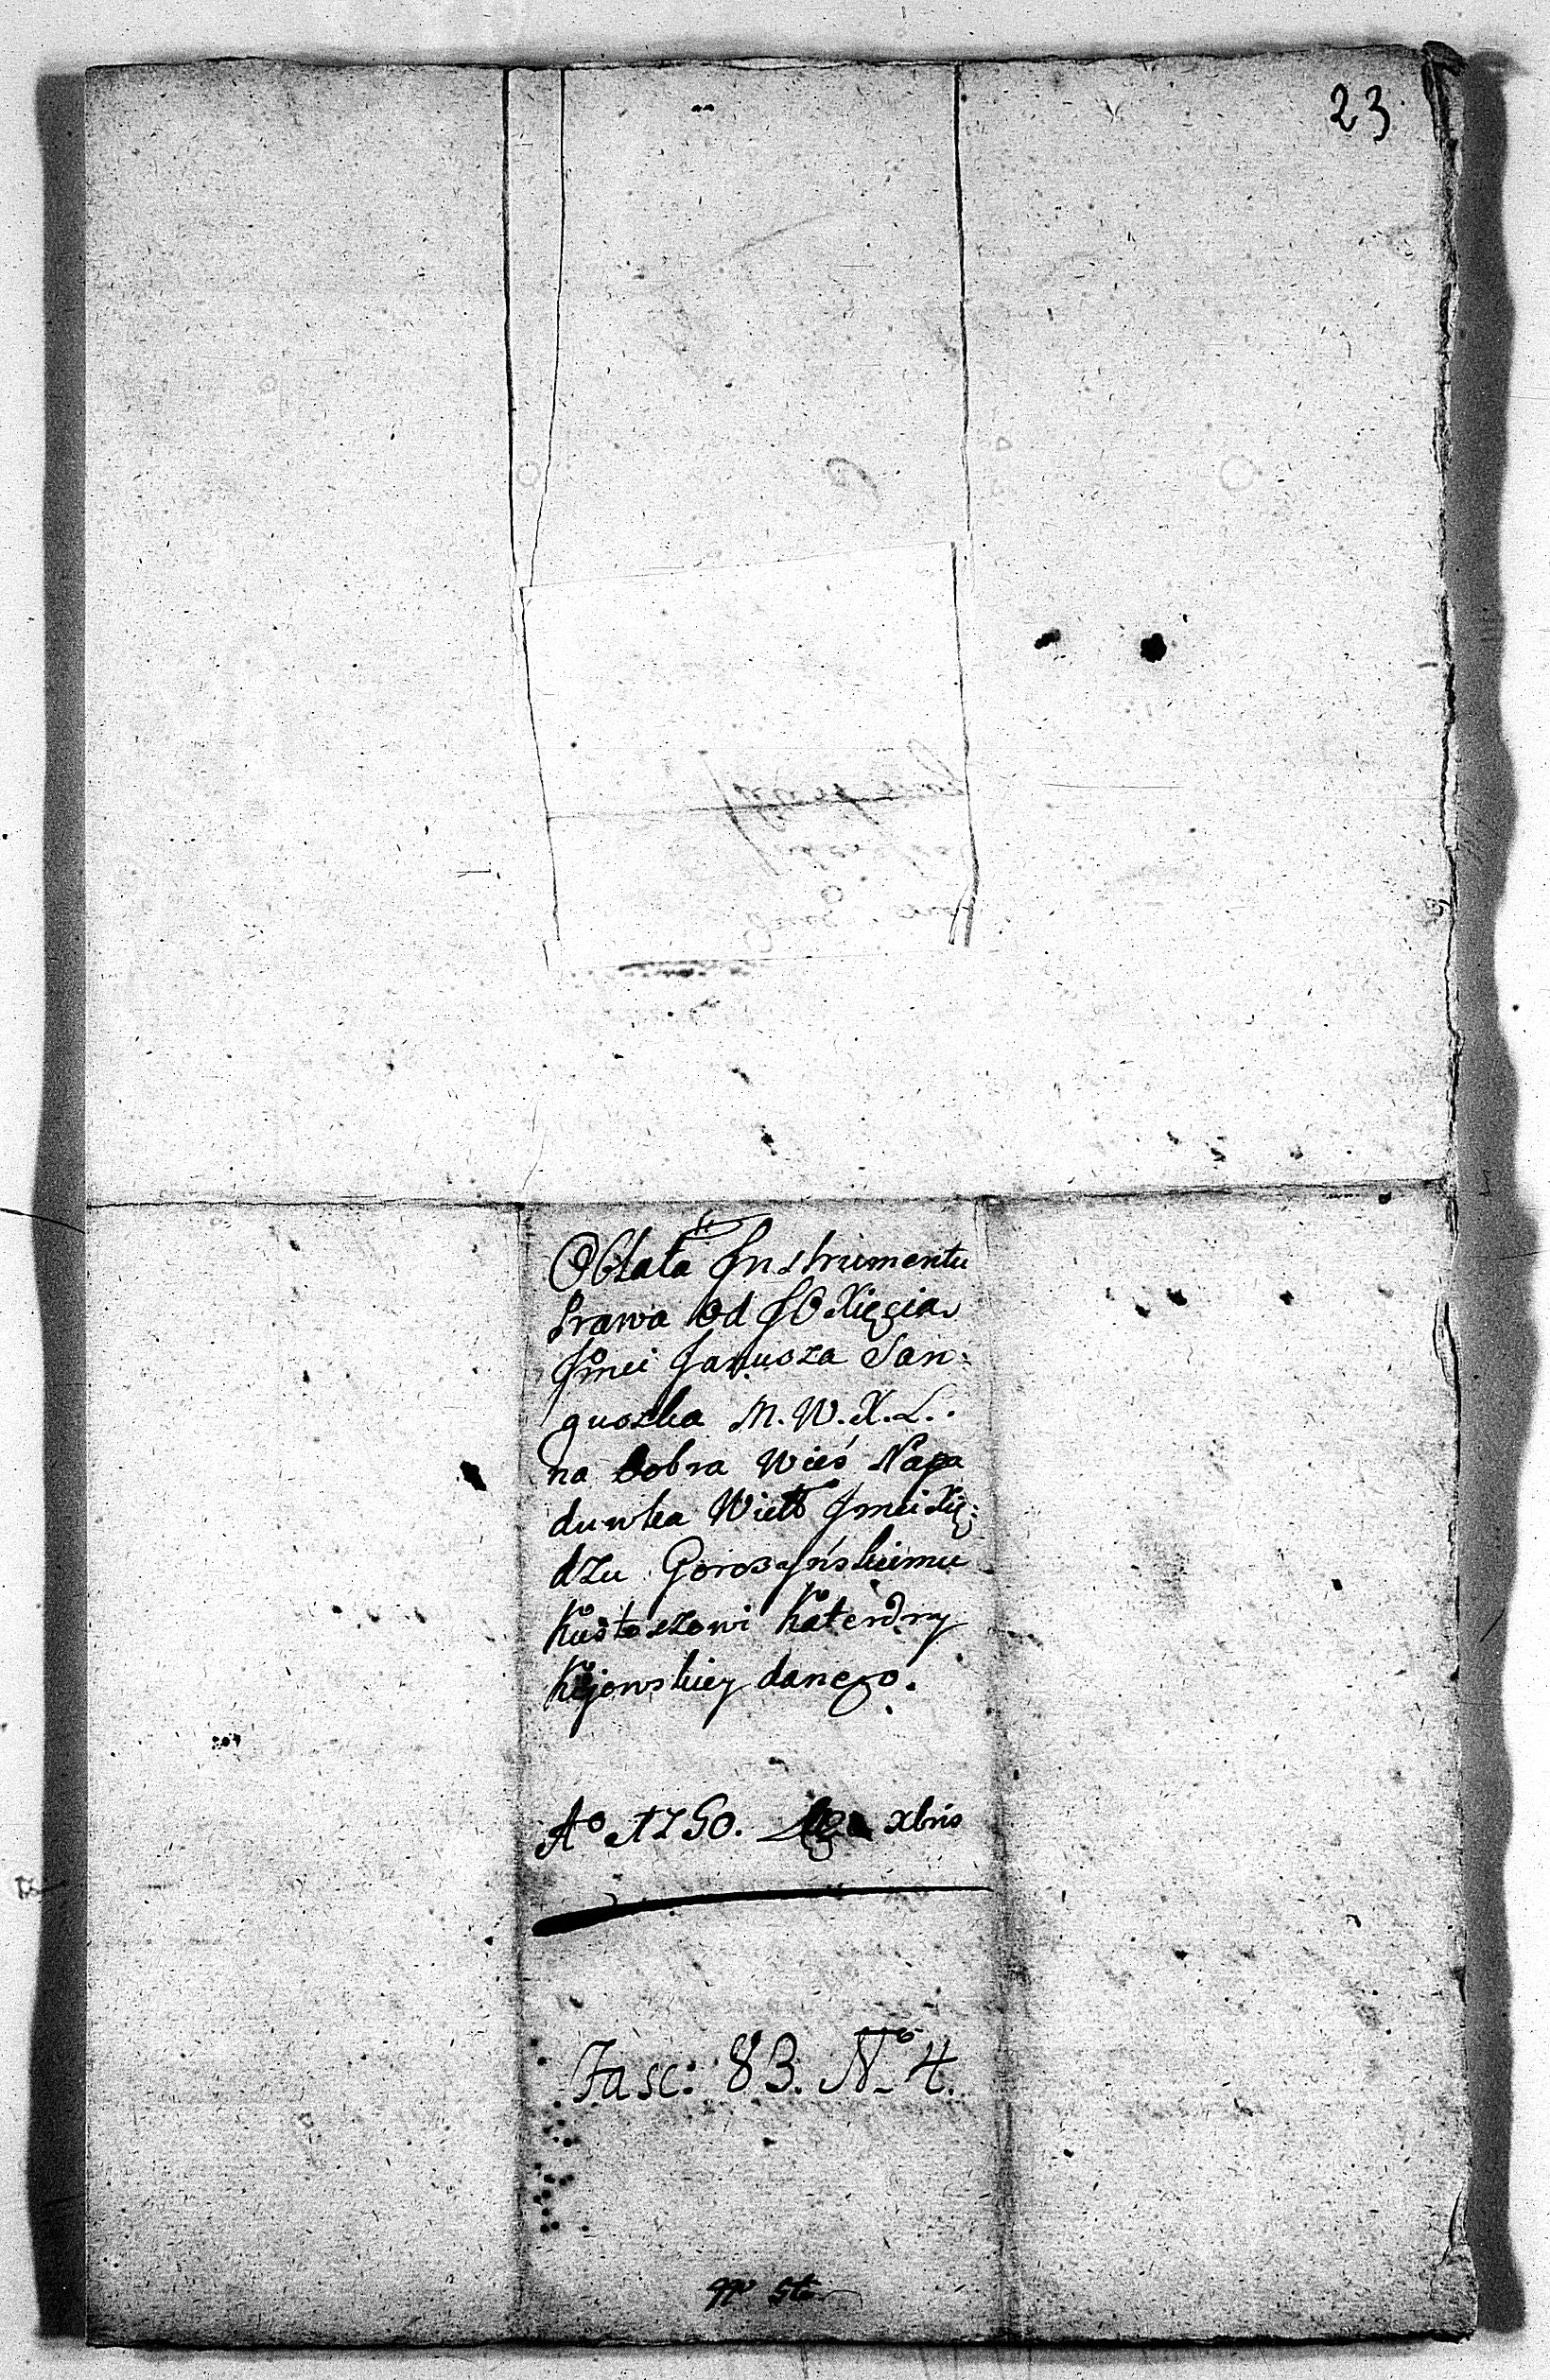 23
Oblata Instrumentu
Prawa od JO Xięcia
Jmci Janusza San:
guszka M. W. X. L.
na Dobra Wieś Napa
duwka Wielb Jmci Xię:
dzu Goroszyńskiemu
Kustoszowi Katedry
Kijowskiey danego.
Aº 1750. xbris
Fasc: 83. Nº 4.